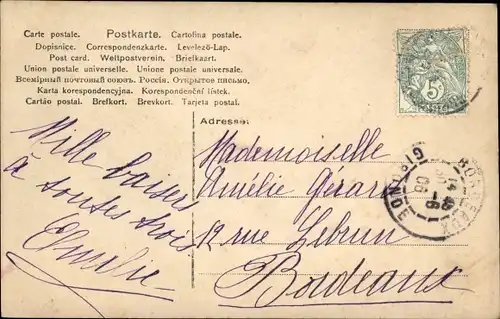 Carte postale. Postkarte. Cartolina postale.
Dopisnice. Correspondenzkarte. Levelező-Lap.
Post card. Weltpostverein. Briefkaart.
Union postale universelle. Unione postale universale.
Всемірный почтовый союзъ. Россія. Открытое письмо.
Karta korespondencyjna. Korespondenční lístek.
Cartão postal. Brefkort. Brevkort. Tarjeta postal.
Adresse:
Mille baisers
à toutes trois
Emilie
Mademoiselle
Amélie Gérard
12 rue Lebrun
Bordeaux
5
BORDEAUX
GIRONDE